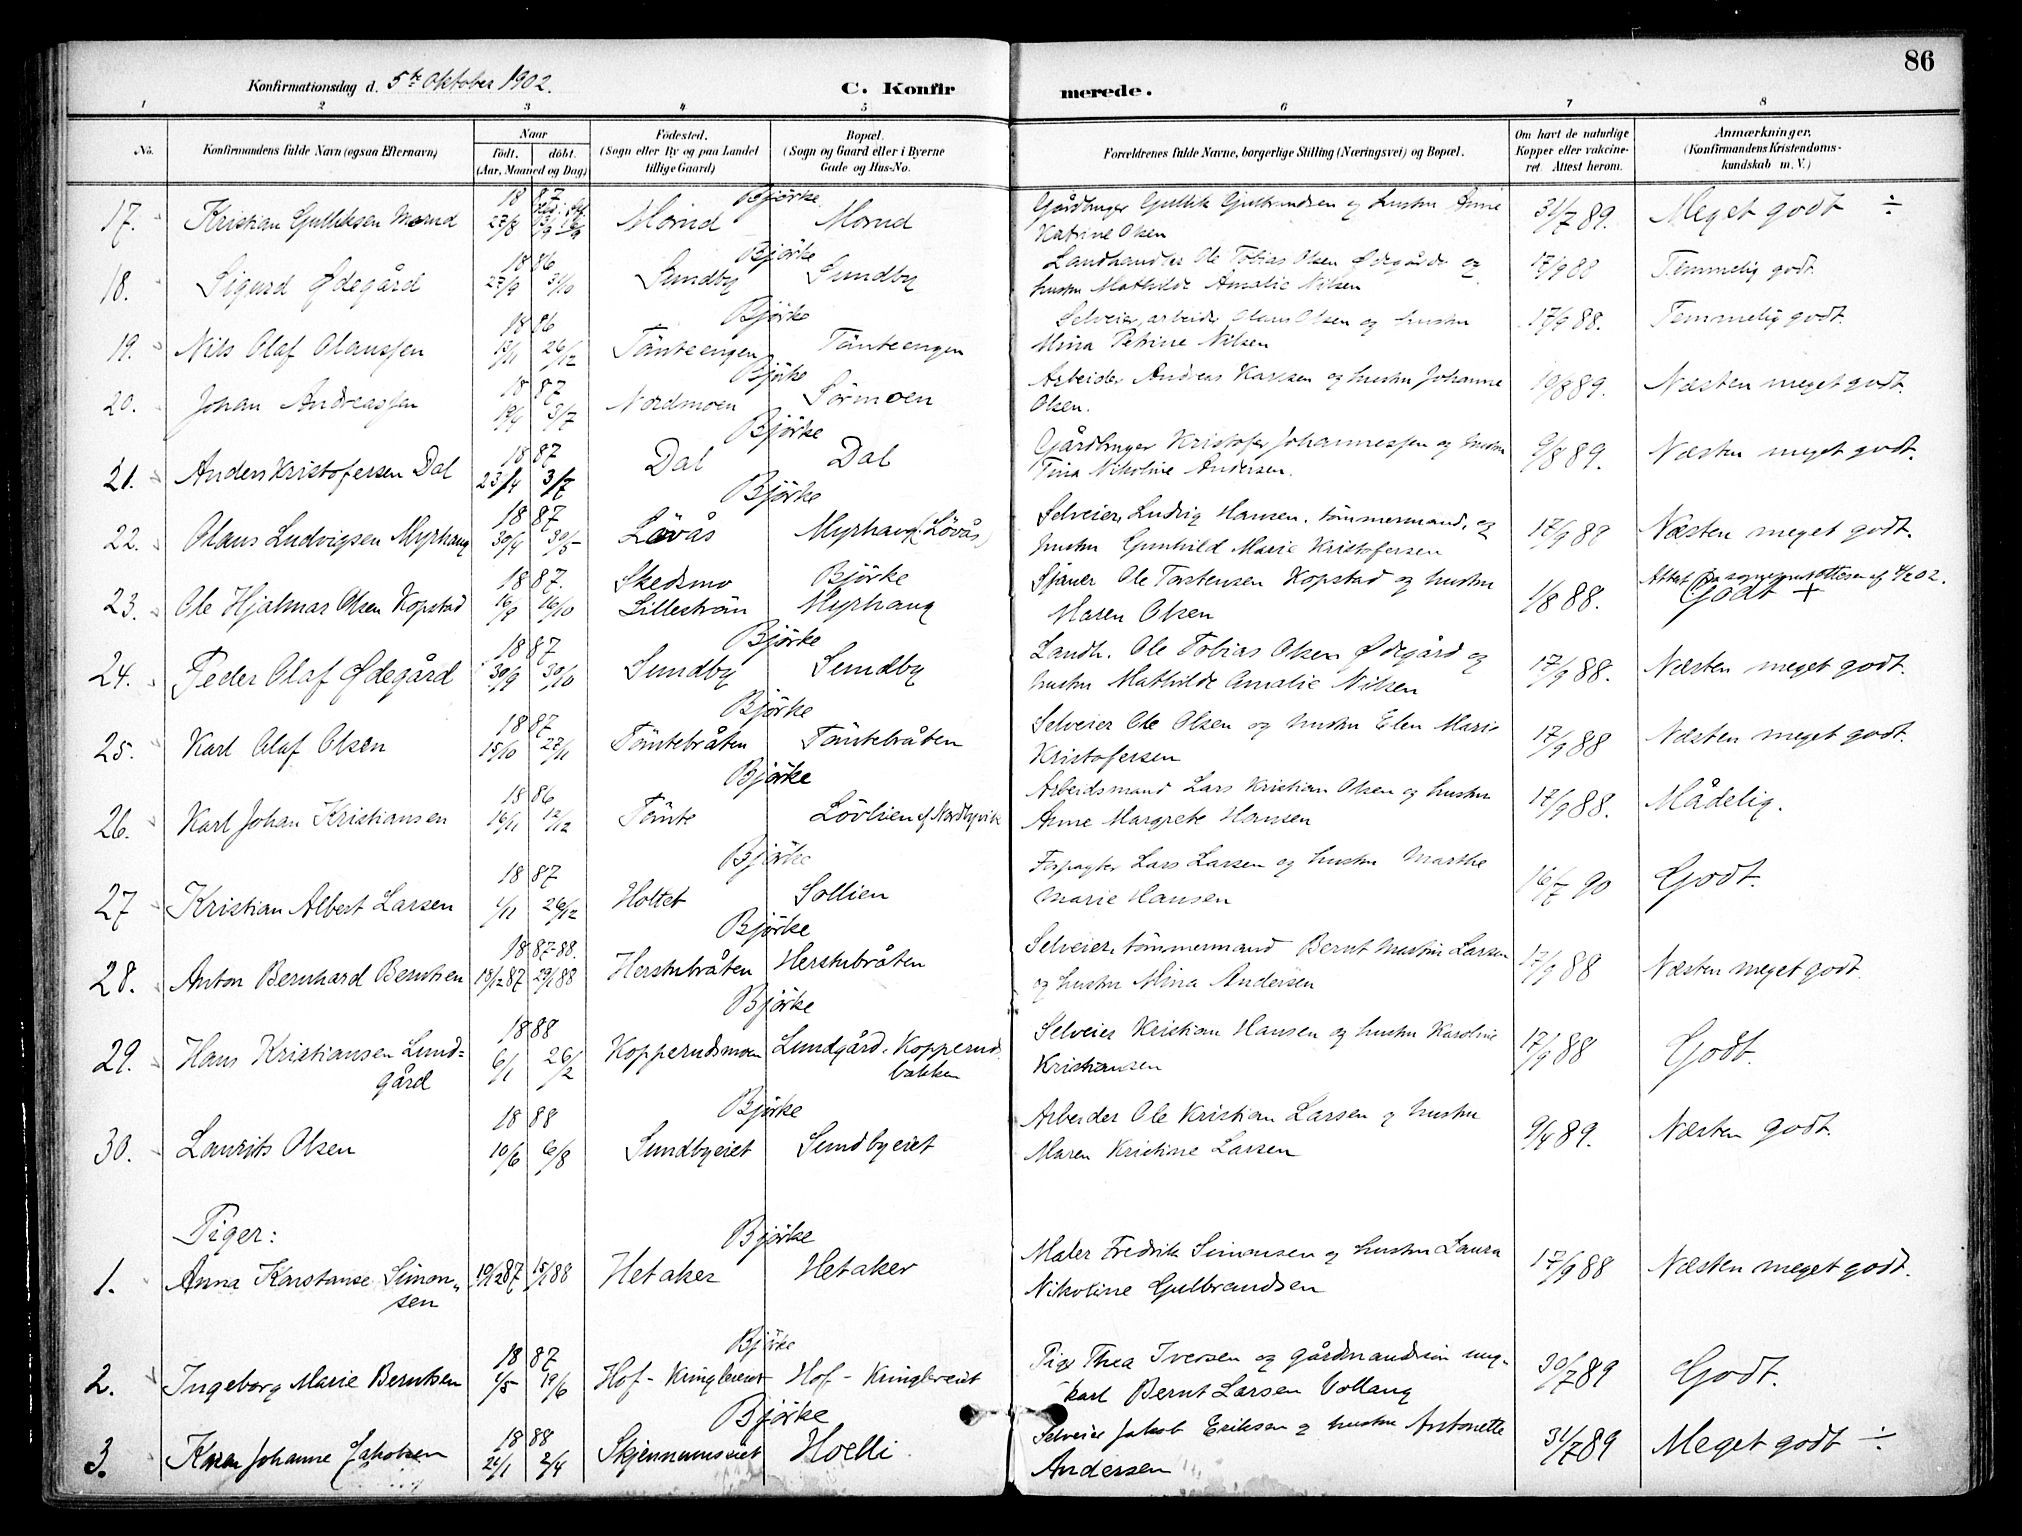 86
Konfirmationsdag d. 5te Oktober 1902.
C. Konfirmerede.
1 2 3 4 5 6 7 8
No.
Konfirmandens fulde Navn (ogsaa Efternavn)
Naar
födt. döbt.
(Aar, Maaned og Dag)
Födested.
(Sogn eller By og paa Landet tillige Gaard)
Bopæl.
(Sogn og Gaard eller i Byerne Gade og Hus-No.
Forældrenes fulde Navne, borgerlige Stilling (Næringsvei) og Bopæl.
Om havt de naturlige Kopper eller vakcineret. Attest herom.
Anmærkninger.
(Konfirmandens Kristendomskundskab m. V.)
18 87 Bjørke
17. Kristian Gulliksen Mørud 27/8 Mørud Mørud Gårdbruger Gullik Gulbrandsen og hustru Anne 31/7 89. Meget godt ÷
Katrine Olsen
18 86 Bjørke
18. Sigurd Ødegård 27/9 31/10 Sundby Sundby Landhandler Ole Tobias Olsen Ødegård og 17/9 88 Temmelig godt.
hustru Mathilde Amalie Nilsen
18 86 Bjørke
19. Nils Olaf Olaussen 12/11 26/12 Tönteengen Tönteengen Selveier, arbeider Olaus Olsen og hustru 17/9 88. Temmelig godt.
Mina Petrine Nilsen
18 87 Bjørke
20. Johan Andreassen 19/4 3/7 Nordmoen Sörmoen Arbeider Andreas Karlsen og hustru Johanne 19/8 89. Næsten meget godt.
Olsen.
18 87 Bjørke
21. Anders Kristofersen Dal 23/4 3/7 Dal Dal Gårdbruger Kristofer Johannessen og hustru 9/8 89. Næsten meget godt.
Tina Nikoline Andersen.
18 87 Bjørke
22. Olaus Ludvigsen Myrhaug 30/4 30/5 Lövås Myrhaug (Lövås) Selveier Ludvig Hansen, tömmermand, og 17/9 88 Næsten meget godt.
hustru Gunhild Marie Kristofersen
18 87. Skedsmo Bjørke
23. Ole Hjalmar Olsen Kopstad 16/9 16/10 Lilleström Myrhaug Sjauer Ole Torstensen Kopstad og hustru 1/8 88. Godt +
Maren Olsen
18 87 Bjørke
24. Peder Olaf Ødegård 30/9 30/10 Sundby Sundby Landh. Ole Tobias Olsen Ødegård og 17/9 88. Næsten meget godt.
hustru Mathilde Amalie Nilsen
18 87 Bjørke
25. Karl Olaf Olsen 15/10 27/11 Töntebråten Töntebråten Selveier Ole Olsen og hustru Elen Marie 17/9 88 Næsten meget godt.
Kristofersen
18 86 Bjørke
26. Karl Johan Kristiansen 16/11 12/12 Tönte Lövlien u/ Nordbyvik Arbeidsmand Lars Kristian Olsen og hustru 17/9 88. Mådelig.
Anne Margrete Hansen
18 87 Bjørke
27 Kristian Albert Larsen 1/11 26/12 Holtet Sollien Forpagter Lars Larsen og hustru Marthe 16/7 90 Godt.
Marie Hansen
18 87-88. Bjørke
28. Anton Bernhard Berntsen 19/12 87 29/1 88 Herstubråten Herstubråten Selveier, tömmermand Bernt Larsen 17/9 88 Næsten meget godt.
og hustru Mina Andersen
18 88 Bjørke
29. Hans Kristiansen Lundgård 6/1 26/2 Kopperudsmoen Lundgård. Kopperudbakken Selveier Kristian Hansen og hustru Karoline 17/9 88 Godt.
Kristiansen
18 88 Bjørke
30. Laurits Olsen 10/6 6/8 Sundbyeiet Sundbyeiet Arbeider Ole Kristian Larsen og hustru 9/4 89. Næsten godt.
Maren Kristine Larsen
Piger: Bjørke
1. Anna Karstanse Simonsen 19/12 87 15/1 88 Hetaker Hetaker Maler Fredrik Simonsen og hustru Laura 17/9 88 Næsten meget godt.
Nikoline Gulbrandsen
18 87 Bjørke
2. Ingeborg Marie Berntsen 1/5 19/6 Hof-Kringlereiet Hof-Kringlereiet Pige Thea Iversen og gårdmandssön ung- 30/7 89 Godt.
karl Bernt Larsen Vollaug
18 88 Bjørke
3. Karen Johanne Jakobsen 21/1 2/4 Skjennumseiet Hoelli Selveier Jakob Eriksen og hustru Antonette 31/7 89 Meget godt ÷
Andersen